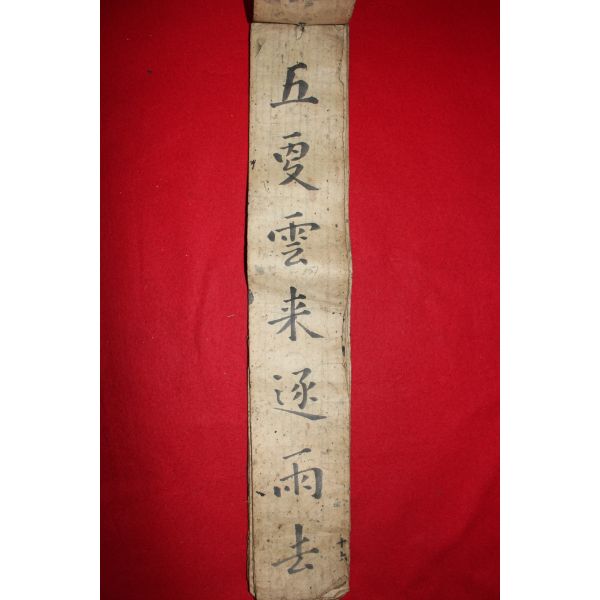 五夏雲来逐雨去
十六